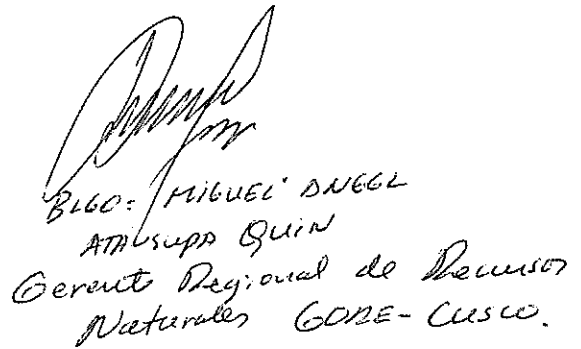 BLGO: MIGUEL ANGEL
ATAUSUPA QUIN
Gerente Regional de Recursos
Naturales GORE-CUSCO.